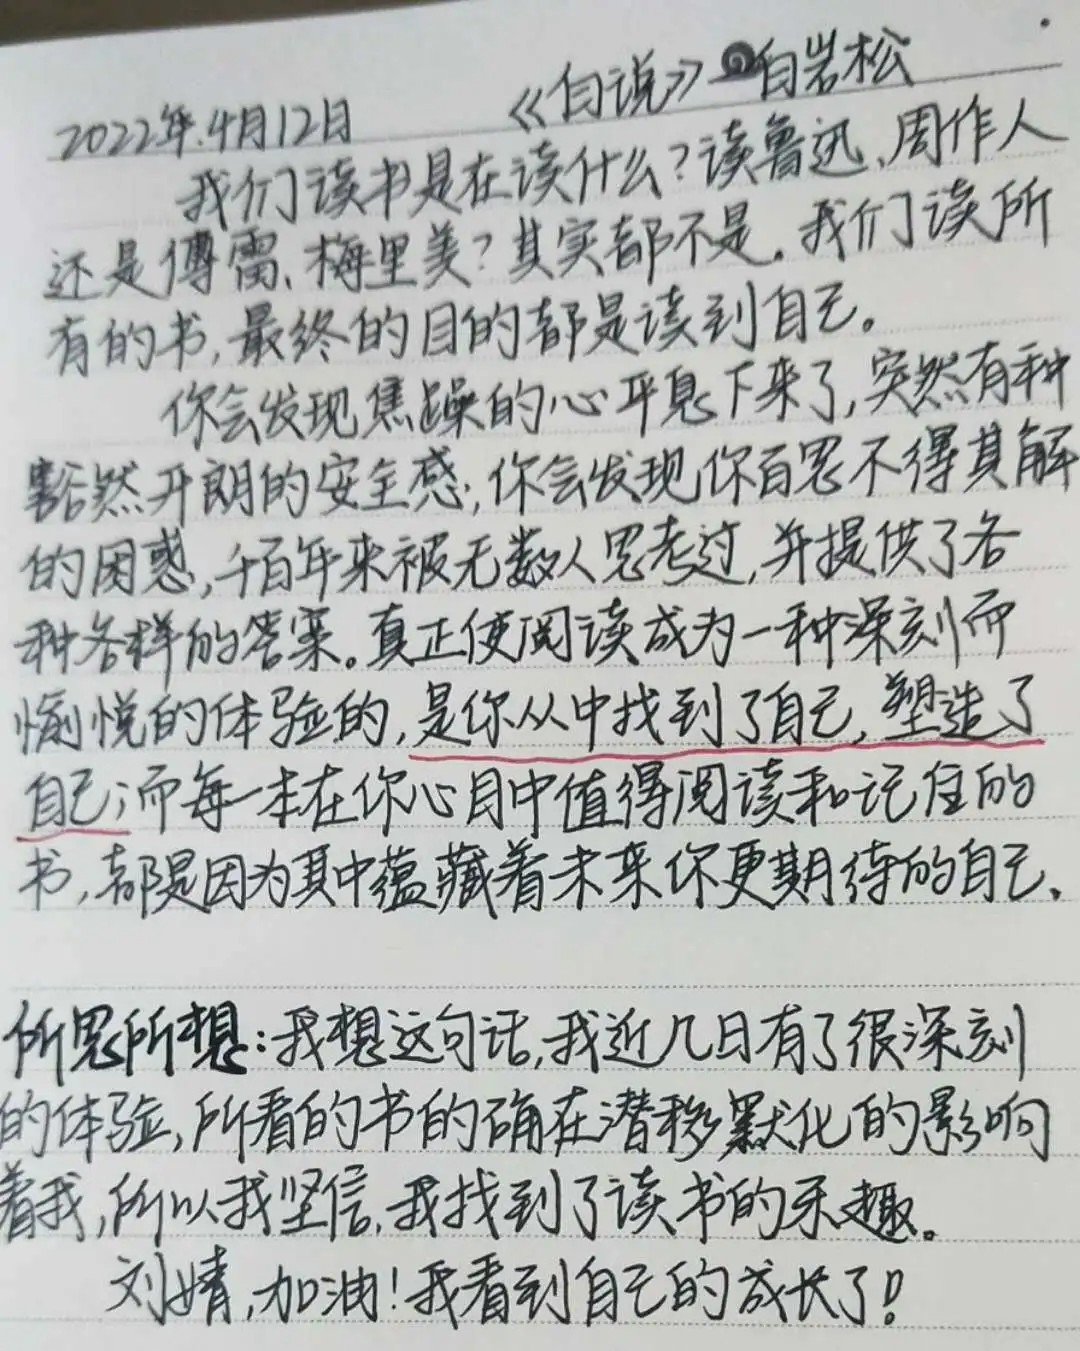 2022年.4月12日 《白说》 白岩松
我们读书是在读什么?读鲁迅、周作人
还是傅雷、梅里美?其实都不是。我们读所
有的书,最终的目的都是读到自己。
你会发现焦躁的心平息下来了,突然有种
豁然开朗的安全感;你会发现你百思不得其解
的困惑,千百年来被无数人思考过,并提供了各
种各样的答案。真正使阅读成为一种深刻而
愉悦的体验的,是你从中找到了自己,塑造了
自己;而每一本在你心目中值得阅读和记住的
书,都是因为其中蕴藏着未来你更期待的自己。
所思所想:我想这句话,我近几日有了很深刻
的体验,所看的书的确在潜移默化的影响
着我,所以我坚信,我找到了读书的乐趣。
刘婧,加油!我看到自己的成长了!